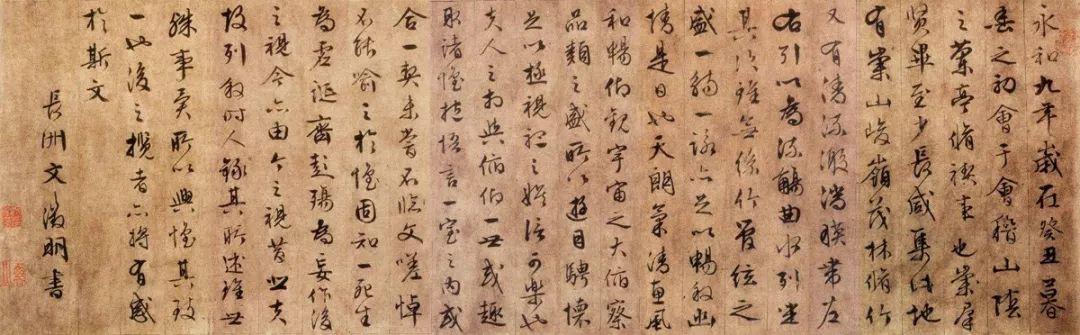 永和九年歲在癸丑暮
春之初會于會稽山陰
之蘭亭脩禊事也羣
賢畢至少長咸集此地
有崇山峻嶺茂林脩竹
又有清流激湍暎帶左
右引以為流觴曲水列坐
其次雖無絲竹管絃之
盛一觴一詠亦足以暢敘幽
情是日也天朗氣清惠風
和暢仰觀宇宙之大俯察
品類之盛所以遊目騁懷
足以極視聽之娛信可樂也
夫人之相與俯仰一世或趣
取諸懷抱悟言一室之內或
合一契未嘗不臨文嗟悼
不能喻之於懷固知一死生
為虛誕齊彭殤為妄作後
之視今亦由今之視昔悲夫
故列敘時人錄其所述雖世
殊事異所以興懷其致
一也後之攬者亦將有感
於斯文
長洲文徵明書